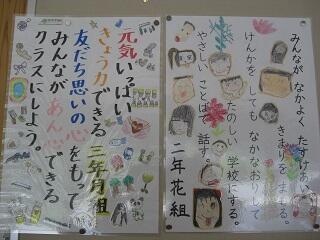 みんなが なかよく たすけあい
きまりを まもる。
けんかを しても なかなおりして
たのしい 学校にする。
やさしい ことばで 話す
二年花組
元気いっぱい
きょう力できる 三年月組
友だち思いの心をもって
みんながあん心できる
クラスにしよう。